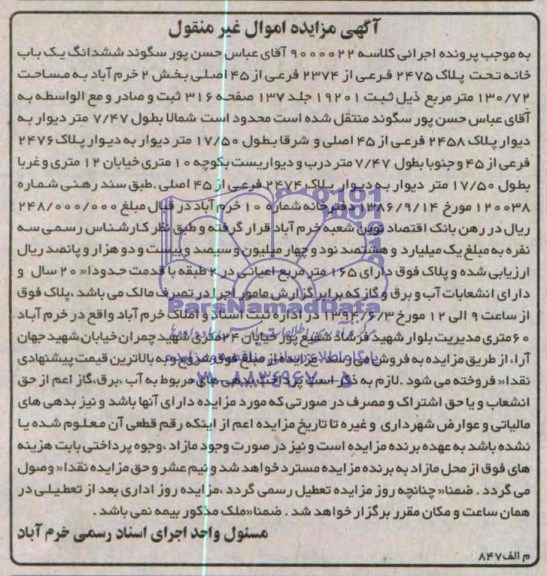 آگهی مزایده اموال غیر منقول
به موجب پرونده اجرائی کلاسه ۹۰۰۰۰۲۲ آقای عباس حسن پور سگوند ششدانگ یک باب
خانه تحت پلاک ۲۴۷۵ فرعی از ۲۳۷۴ فرعی از ۴۵ اصلی بخش ۲ خرم آباد به مساحت
۱۳۰/۷۲ متر مربع ذیل ثبت ۱۹۲۰۱ جلد ۱۳۷ صفحه ۳۱۶ ثبت و صادر و مع الواسطه به
آقای عباس حسن پور سگوند منتقل شده است محدود است شمالا بطول ۷/۴۷ متر دیوار به
دیوار پلاک ۲۴۵۸ فرعی از ۴۵ اصلی و شرقا بطول ۱۷/۵۰ متر دیوار به دیوار پلاک ۲۴۷۶
فرعی از ۴۵ و جنوبا بطول ۷/۴۷ متر درب و دیواریست بکوچه ۱۰ متری خیابان ۱۲ متری و غربا
بطول ۱۷/۵۰ متر دیوار به دیوار پلاک ۲۴۷۴ فرعی از ۴۵ اصلی .طبق سند رهنی شماره
۱۲۰۰۳۸ مورخ ۱۳۸۶/۹/۱۴ دفترخانه شماره ۱۰ خرم آباد در قبال مبلغ ۲۴۸/۰۰۰/۰۰۰
ریال در رهن بانک اقتصاد نوین شعبه خرم آباد قرار گرفته و طبق نظر کارشناس رسمی سه
نفره به مبلغ یک میلیارد و هشتصد نود و چهار میلیون و سیصد و بیست و دو هزار و پانصد ریال
ارزیابی شده و پلاک فوق دارای ۱۶۵ متر مربع اعیانی در ۲ طبقه با قدمت حدودا« ۲۰ سال و
دارای انشعابات آب و برق و گاز که برابر گزارش مامور اجرا در تصرف مالک می باشد .پلاک فوق
از ساعت ۹ الی ۱۲ مورخ ۱۳۹۴/۶/۳ در اداره ثبت اسناد و املاک خرم آباد واقع در خرم آباد
۶۰متری مدیریت بلوار شهید فرشاد شفیع پور خیابان ۲۴متری شهید چمران خیابان شهید جهان
آراء، از طریق مزایده به فروش می رسد .مزایده از مبلغ فوق شروع و به بالاترین قیمت پیشنهادی
نقدا« فروخته می شود .لازم به ذکر است پرداخت بدهی های مربوط به آب ،برق،گاز اعم از حق
انشعاب و یا حق اشتراک و مصرف در صورتی که مورد مزایده دارای آنها باشد و نیز بدهی های
مالیاتی و عوارض شهرداری و غیره تا تاریخ مزایده اعم از اینکه رقم قطعی آن معلوم شده یا
نشده باشد به عهده برنده مزایده است و نیز در صورت وجود مازاد ،وجوه پرداختی بابت هزینه
های فوق از محل مازاد به برنده مزایده مسترد خواهد شد و نیم عشر و حق مزایده نقدا« وصول
می گردد . ضمنا« چنانچه روز مزایده تعطیل رسمی گردد ،مزایده روز اداری بعد از تعطیلی در
همان ساعت و مکان مقرر برگزار خواهد شد . ضمنا«ملک مذکور بیمه نمی باشد .
مسئول واحد اجرای اسناد رسمی خرم آباد
م الف۸۴۷
ParsNamadData